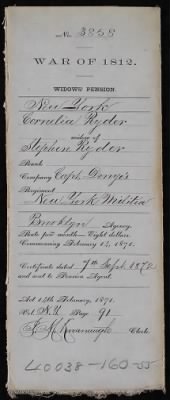 No. 3858
WAR OF 1812.
WIDOWS' PENSION.
New York
Cornelia Ryder
widow of
Stephen Ryder
Rank
Company Capt. Denye's
Regiment
New York Militia
Brooklyn Agency.
Rate per month Eight dollars.
Commencing February 14, 1871.
Certificate dated 7th Sept. 1872
and sent to Pension Agent.
Act 14th February, 1871.
Vol. N.Y. Page 91
Clerk.
40038-160-55